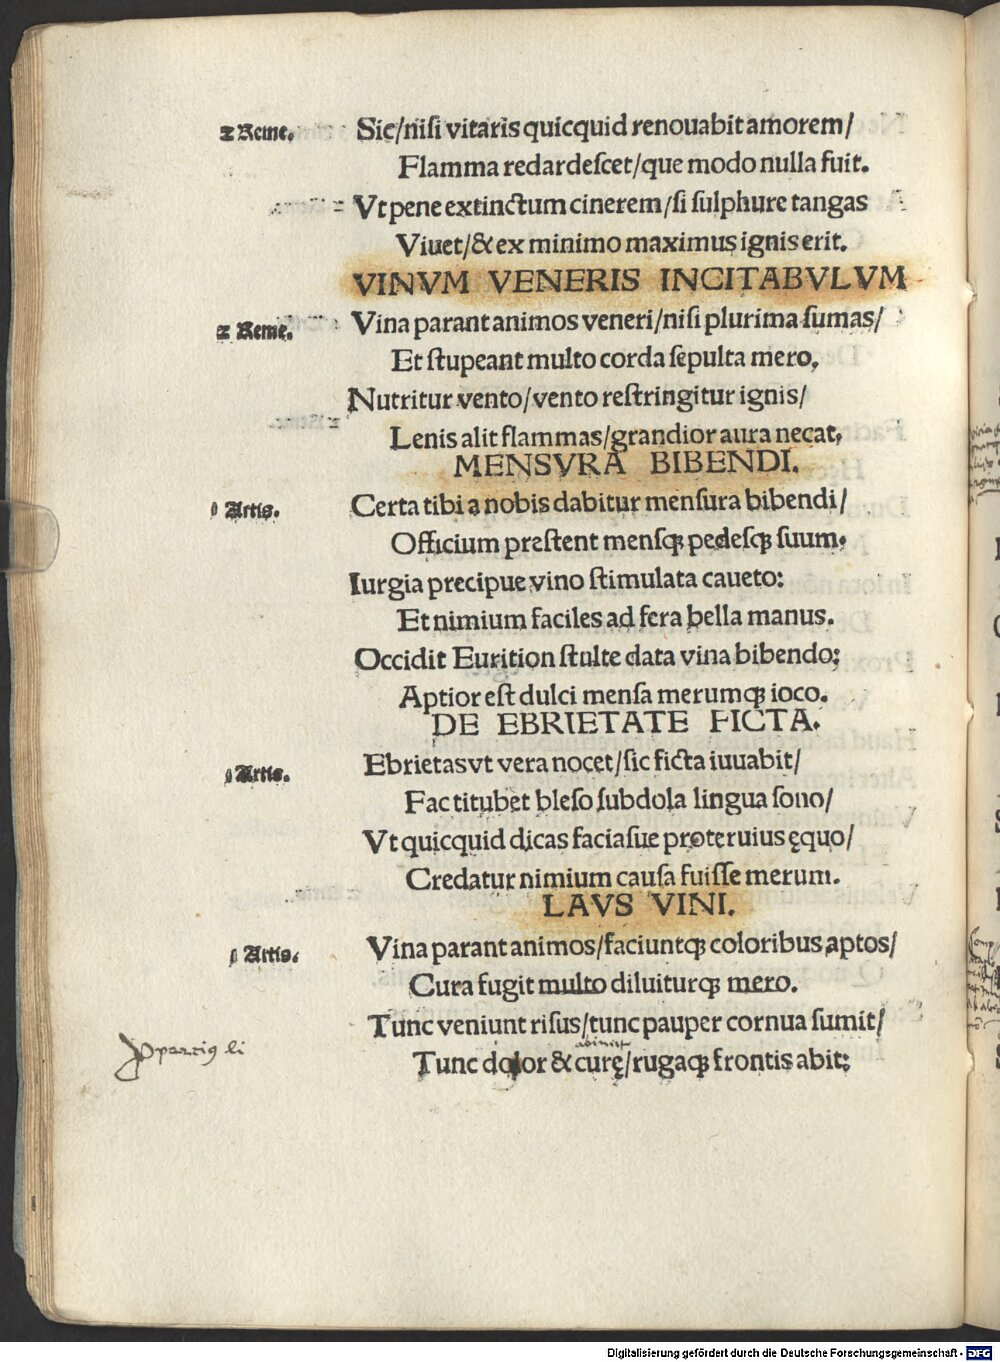 2 Reme. Sic/nisi vitaris quicquid renouabit amorem/
Flamma redardescet/que modo nulla fuit.
Vt pene extinctum cinerem/si sulphure tangas
Viuet/& ex minimo maximus ignis erit.
VINVM VENERIS INCITABVLVM
2 Reme. Vina parant animos veneri/nisi plurima sumas/
Et stupeant multo corda sepulta mero,
Nutritur vento/vento restringitur ignis/
Lenis alit flammas/grandior aura necat,
MENSVRA BIBENDI.
Artis. Certa tibi a nobis dabitur mensura bibendi/
Officium prestent mensqꝫ pedesqꝫ suum.
Iurgia precipue vino stimulata caueto:
Et nimium faciles ad fera bella manus.
Occidit Eurition stulte data vina bibendo:
Aptior est dulci mensa merumqꝫ ioco.
DE EBRIETATE FICTA.
Artis. Ebrietas vt vera nocet/sic ficta iuuabit/
Fac titubet bleso subdola lingua sono/
Vt quicquid dicas faciasue proteruius ęquo/
Credatur nimium causa fuisse merum.
LAVS VINI.
Artis. Vina parant animos/faciuntqꝫ coloribus aptos/
Cura fugit multo diluiturqꝫ mero.
Tunc veniunt risus/tunc pauper cornua sumit/
Tunc dolor & curę/rugaqꝫ frontis abit:
Digitalisierung gefördert durch die Deutsche Forschungsgemeinschaft - DFG